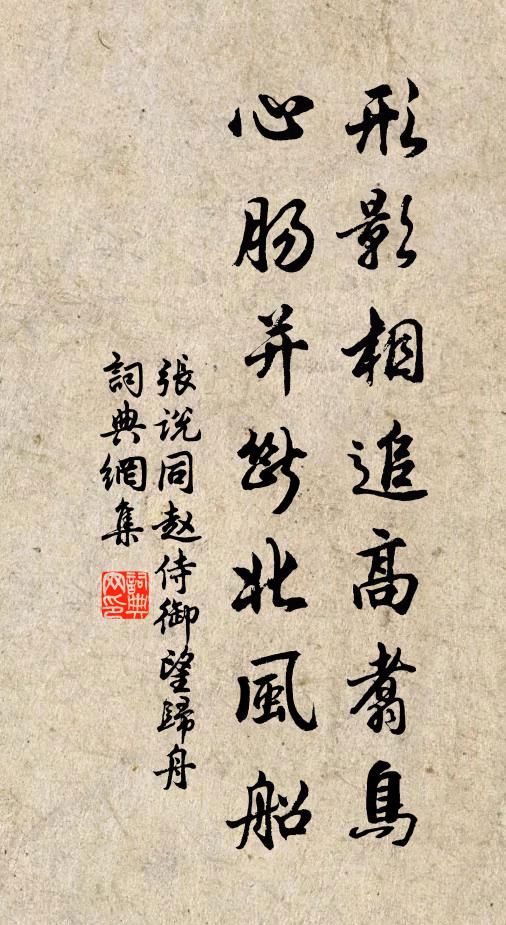 形影相追高翥鳥
心腸并斷北風船
張說同趙侍御望歸舟
詞典網集
詞典网印